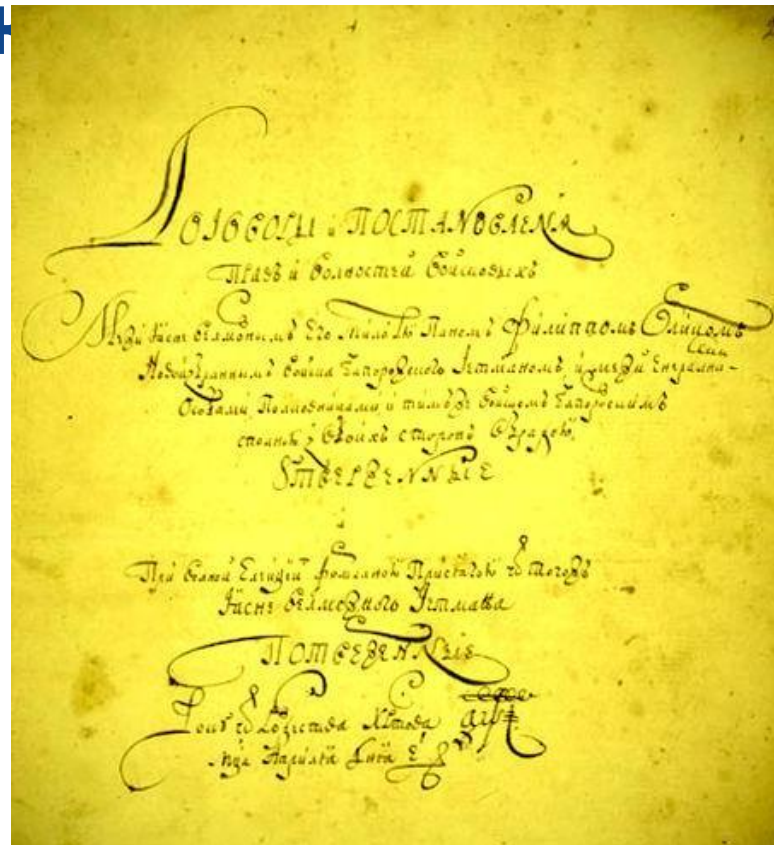 Договоры и Постановленя
Правъ и волностей войсковыхъ
Межи Ясне велможнымъ Его милостю Паномъ Филиппомъ Орликомъ
Новоизбраннымъ войска Запорожского Гетманомъ, и межи Енералними
Особами, Полковниками и тимъ же войскомъ Запорозскимъ
сполною з обоихъ сторонъ обрадою
Утверженные
При волной Елекцѣи формалною Присягою ѿ тогожъ
Ясне велможного Гетмана
Потверженные
Року ѿ Рожества Хрстова
мца Априля дня є҃